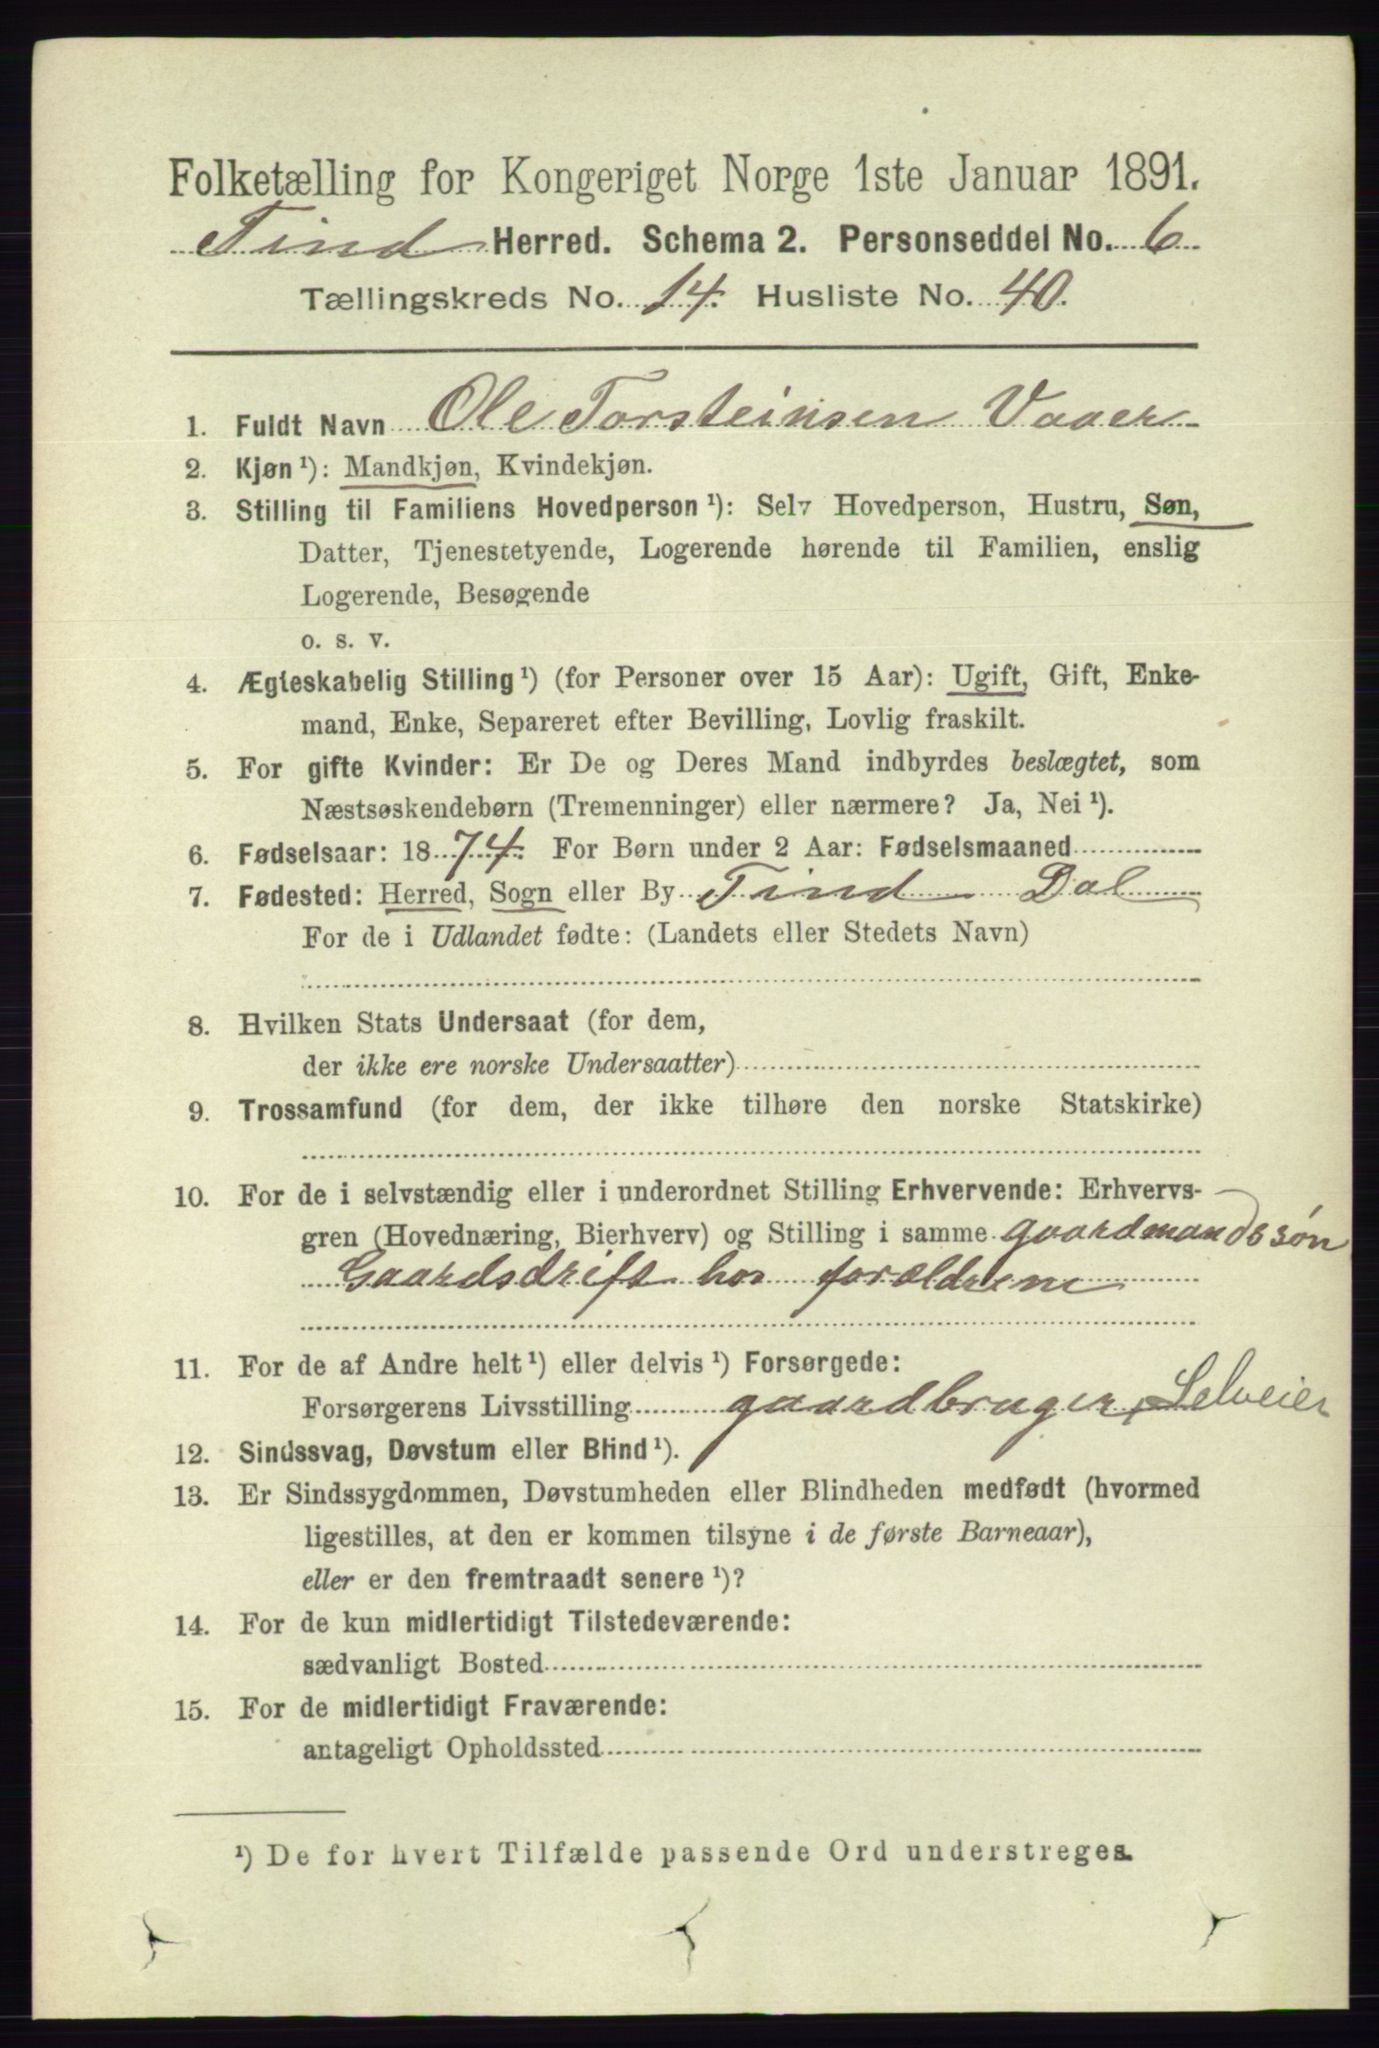 Folketælling for Kongeriget Norge 1ste Januar 1891.
Tind Herred. Schema 2. Personseddel No. 6
Tællingskreds No. 14. Husliste No. 40.
1. Fuldt Navn Ole Torsteinsen Vaaer
2. Kjøn¹): Mandkjøn, Kvindekjøn.
3. Stilling til Familiens Hovedperson¹): Selv Hovedperson, Hustru, Søn,
Datter, Tjenestetyende, Logerende hørende til Familien, enslig
Logerende, Besøgende
o. s. v.
4. Ægteskabelig Stilling¹) (for Personer over 15 Aar): Ugift, Gift, Enke-
mand, Enke, Separeret efter Bevilling, Lovlig fraskilt.
5. For gifte Kvinder: Er De og Deres Mand indbyrdes beslægtet, som
Næstsøskendebørn (Tremenninger) eller nærmere? Ja, Nei¹).
6. Fødselsaar: 1874. For Børn under 2 Aar: Fødselsmaaned
7. Fødested: Herred, Sogn eller By Tind Dal
For de i Udlandet fødte: (Landets eller Stedets Navn)
8. Hvilken Stats Undersaat (for dem,
der ikke ere norske Undersaatter)
9. Trossamfund (for dem, der ikke tilhøre den norske Statskirke)
10. For de i selvstændig eller i underordnet Stilling Erhvervende: Erhvervs-
gren (Hovednæring, Bierhverv) og Stilling i samme gaardmandssøn
Gaardsdrift hos forældrene
11. For de af Andre helt¹) eller delvis¹) Forsørgede:
Forsørgerens Livsstilling gaardbruger, Selveier
12. Sindssvag, Døvstum eller Blind¹).
13. Er Sindssygdommen, Døvstumheden eller Blindheden medfødt (hvormed
ligestilles, at den er kommen tilsyne i de første Barneaar),
eller er den fremtraadt senere¹)?
14. For de kun midlertidigt Tilstedeværende:
sædvanligt Bosted
15. For de midlertidigt Fraværende:
antageligt Opholdssted
¹) De for hvert Tilfælde passende Ord understreges.